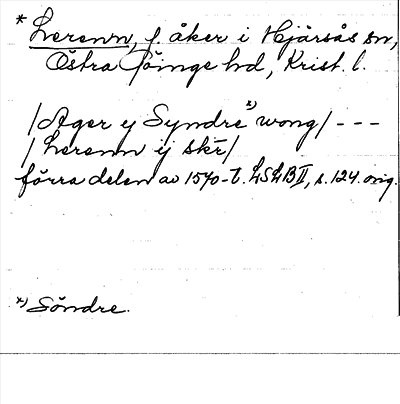 * Lerenn, f. åker i Hjärsås sn,
Östra Göinge hd, Krist. l.
/Ager ej Syndre *) wong/ - - -
/Lerenn ij skr/
förra delen av 1570-t. LSLB II, s. 124. orig.
*) Söndre.